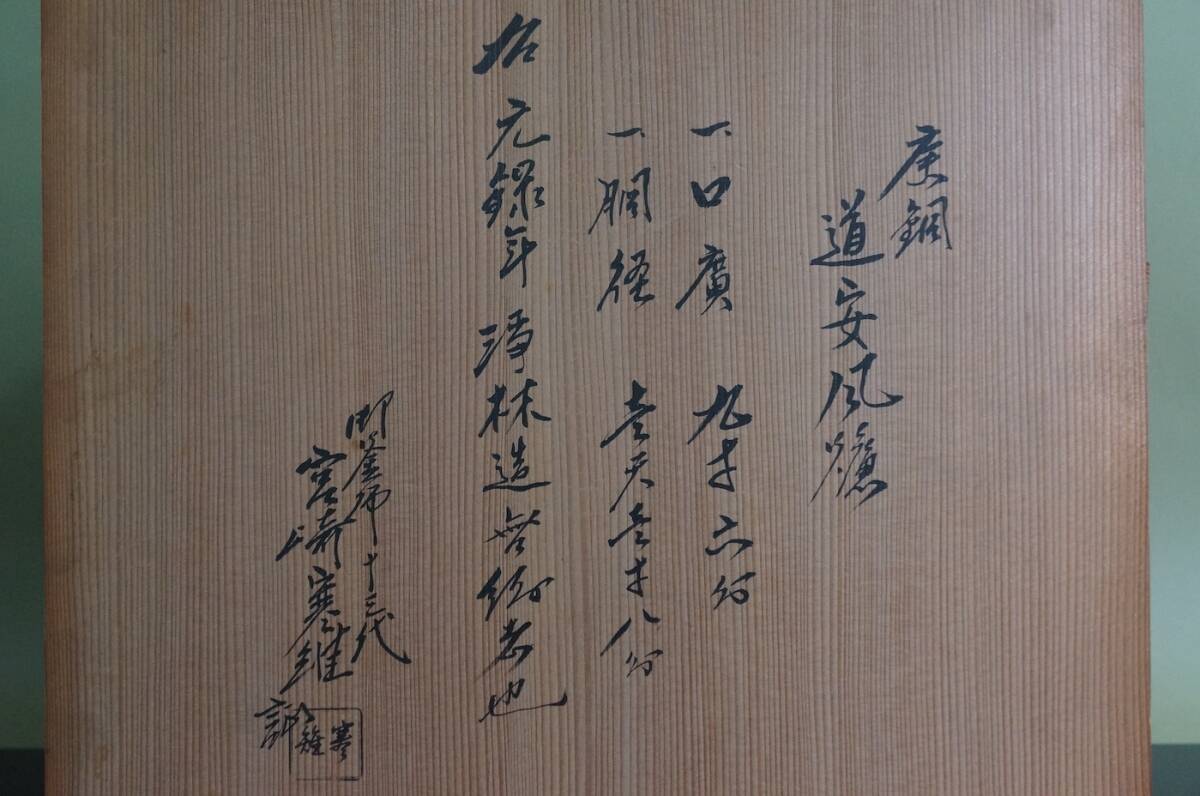 唐銅
道安風爐
一、口廣 九寸六分
一、胴径 壱尺壱寸八分
右元禄年浄林造無紛者也
御釜師十三代
宮崎寒雉 訓
寒雉